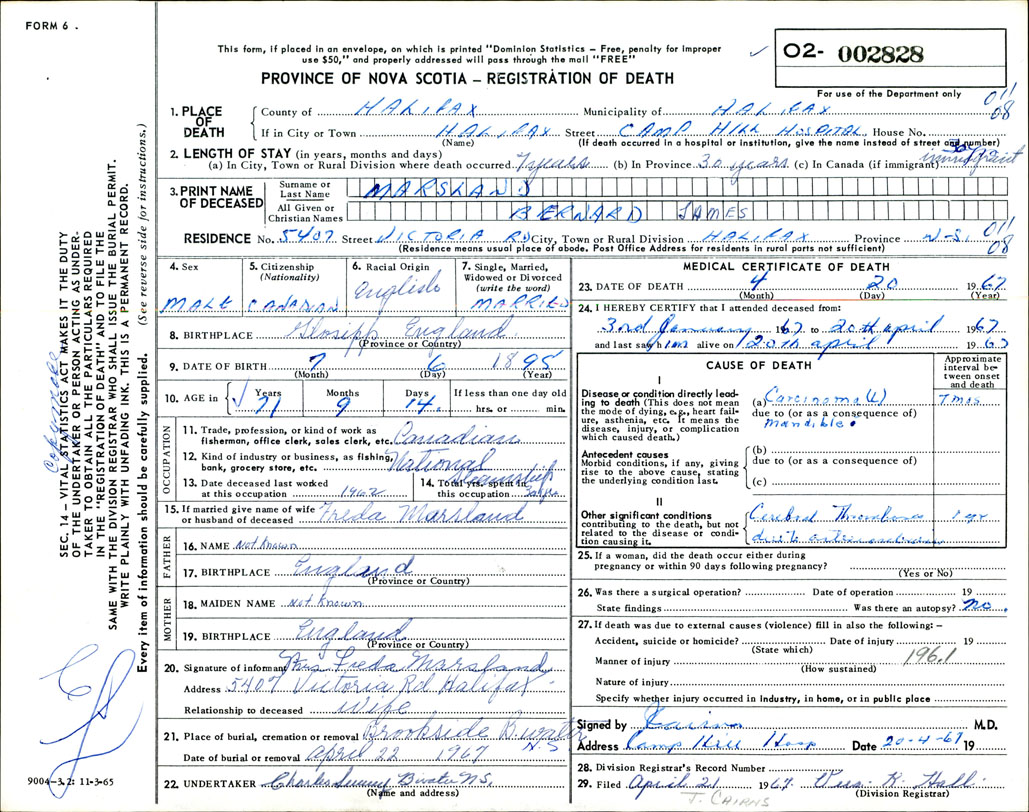 FORM 6 .
This form, if placed in an envelope, on which is printed "Dominion Statistics – Free, penalty for improper
use $50," and properly addressed will pass through the mail "FREE"
PROVINCE OF NOVA SCOTIA – REGISTRATION OF DEATH
✓ 02- 002828
For use of the Department only
011
08
1. PLACE OF DEATH
County of HALIFAX Municipality of HALIFAX
If in City or Town HALIFAX Street CAMP HILL HOSPITAL House No.
(Name) (If death occurred in a hospital or institution, give the name instead of street and number)
2. LENGTH OF STAY (in years, months and days)
(a) In City, Town or Rural Division where death occurred 7 years (b) In Province 30 years (c) In Canada (if immigrant) immigrant
3. PRINT NAME OF DECEASED
Surname or Last Name MARSLAND
All Given or Christian Names BERNARD JAMES
RESIDENCE No. 5407 Street VICTORIA RD City, Town or Rural Division HALIFAX Province N.S.
011
08
(Residence means usual place of abode. Post Office Address for residents in rural parts not sufficient)
4. Sex MALE
5. Citizenship (Nationality) CANADIAN
6. Racial Origin English
7. Single, Married, Widowed or Divorced (write the word) MARRIED
8. BIRTHPLACE England
(Province or Country)
9. DATE OF BIRTH 7 6 1895
(Month) (Day) (Year)
10. AGE in ✓ Years 71 Months 9 Days 14. If less than one day old
hrs. or min.
OCCUPATION
11. Trade, profession, or kind of work as
fisherman, office clerk, sales clerk, etc. Canadian
12. Kind of industry or business, as fishing,
bank, grocery store, etc. National Steamship
13. Date deceased last worked
at this occupation 1962
14. Total yrs. spent in
this occupation
15. If married give name of wife
or husband of deceased Freda Marsland
FATHER
16. NAME Not Known
17. BIRTHPLACE England
(Province or Country)
MOTHER
18. MAIDEN NAME Not Known
19. BIRTHPLACE England
(Province or Country)
20. Signature of informant Mrs Freda Marsland
Address 5407 Victoria Rd Halifax
Relationship to deceased Wife
21. Place of burial, cremation or removal Brookside B.water N.S
Date of burial or removal April 22 1967
22. UNDERTAKER B.water N.S.
(Name and Address)
MEDICAL CERTIFICATE OF DEATH
23. DATE OF DEATH 4 20 1967
(Month) (Day) (Year)
24. I HEREBY CERTIFY that I attended deceased from:
3rd January 1967 to 20th April 1967
and last saw him alive on 20th April 1967
CAUSE OF DEATH
Approximate interval between onset and death
I
Disease or condition directly leading to death (This does not mean the mode of dying, e.g., heart failure, asthenia, etc. It means the disease, injury, or complication which caused death.)
(a) Carcinoma (L) 7 mos
due to (or as a consequence of)
Mandible.
Antecedent causes
Morbid conditions, if any, giving rise to the above cause, stating the underlying condition last.
(b)
due to (or as a consequence of)
(c)
II
Other significant conditions
contributing to the death, but not related to the disease or condition causing it.
Cerebral Thrombosis 1 yr
due to arteriosclerosis
25. If a woman, did the death occur either during
pregnancy or within 90 days following pregnancy?
(Yes or No)
26. Was there a surgical operation? Date of operation 19
State findings Was there an autopsy? No.
27. If death was due to external causes (violence) fill in also the following: –
Accident, suicide or homicide? Date of injury 19
(State which)
Manner of injury 196.1
(How sustained)
Nature of injury
Specify whether injury occurred in industry, in home, or in public place
Signed by Cairns M.D.
Address Camp Hill Hosp Date 20-4-67 19
28. Division Registrar's Record Number
29. Filed April 21 1967. K. Hall
J. CAIRNS (Division Registrar)
SEC. 14 – VITAL STATISTICS ACT MAKES IT THE DUTY
OF THE UNDERTAKER OR PERSON ACTING AS UNDER-
TAKER TO OBTAIN ALL THE PARTICULARS REQUIRED
IN THE "REGISTRATION OF DEATH" AND TO FILE THE
SAME WITH THE DIVISION REGISTRAR WHO SHALL ISSUE THE BURIAL PERMIT.
WRITE PLAINLY WITH UNFADING INK. THIS IS A PERMANENT RECORD.
Every item of information should be carefully supplied. (See reverse side for instructions.)
9004-3.2: 11-3-65